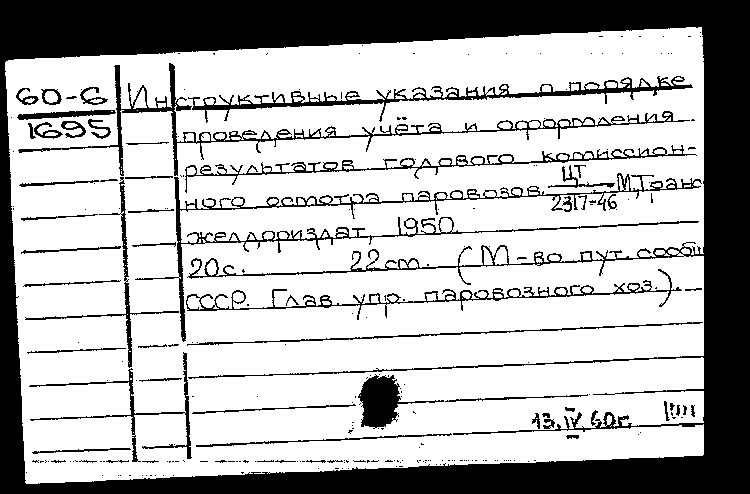 60-6 Инструктивные указания о порядке
1695 проведения учёта и оформления
результатов годового комиссион-
ного осмотра паровозов ЦТ/2317-46 М, Транс
желдориздат, 1950.
20с. 22ст. (М-во пут. сообщ
СССР. Глав. упр. паровозного хоз.).
13.IV.60г.